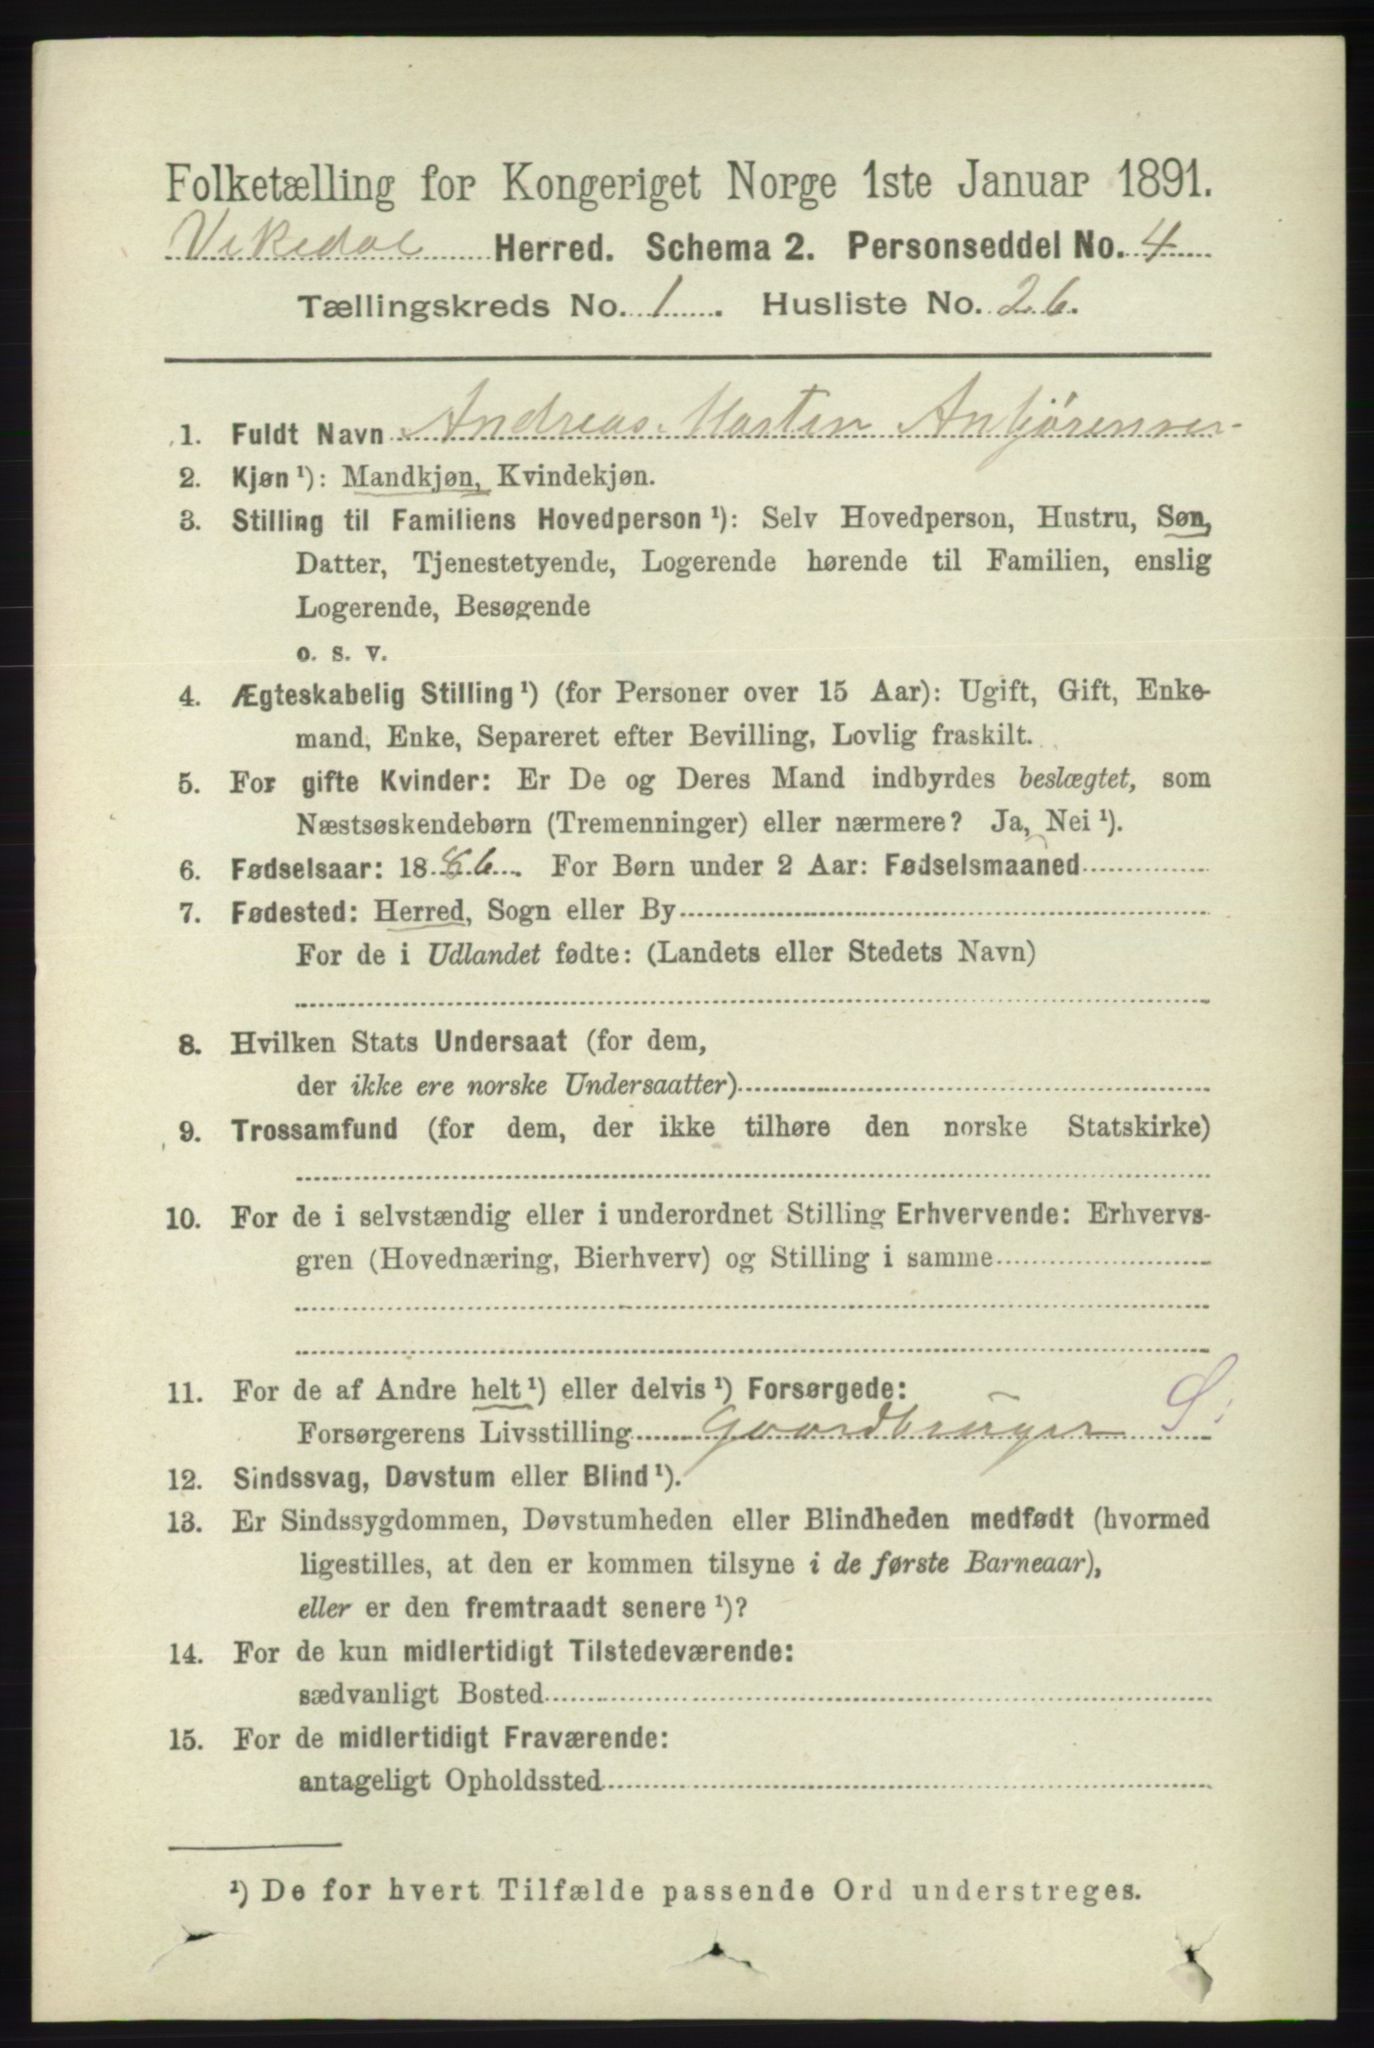 Folketælling for Kongeriget Norge 1ste Januar 1891.
Vikedal Herred. Schema 2. Personseddel No. 4
Tællingskreds No. 1. Husliste No. 26.
1. Fuldt Navn Andreas Martin
2. Kjøn ¹): Mandkjøn, Kvindekjøn.
3. Stilling til Familiens Hovedperson ¹): Selv Hovedperson, Hustru, Søn,
Datter, Tjenestetyende, Logerende hørende til Familien, enslig
Logerende, Besøgende
o. s. v.
4. Ægteskabelig Stilling ¹) (for Personer over 15 Aar): Ugift, Gift, Enke-
mand, Enke, Separeret efter Bevilling, Lovlig fraskilt.
5. For gifte Kvinder: Er De og Deres Mand indbyrdes beslægtet, som
Næstsøskendebørn (Tremenninger) eller nærmere? Ja, Nei ¹).
6. Fødselsaar: 1886. For Børn under 2 Aar: Fødselsmaaned
7. Fødested: Herred, Sogn eller By
For de i Udlandet fødte: (Landets eller Stedets Navn)
8. Hvilken Stats Undersaat (for dem,
der ikke ere norske Undersaatter)
9. Trossamfund (for dem, der ikke tilhøre den norske Statskirke)
10. For de i selvstændig eller i underordnet Stilling Erhvervende: Erhvervs-
gren (Hovednæring, Bierhverv) og Stilling i samme
11. For de af Andre helt ¹) eller delvis ¹) Forsørgede:
Forsørgerens Livsstilling Gaardbruger S.
12. Sindssvag, Døvstum eller Blind ¹).
13. Er Sindssygdommen, Døvstumheden eller Blindheden medfødt (hvormed
ligestilles, at den er kommen tilsyne i de første Barneaar),
eller er den fremtraadt senere ¹)?
14. For de kun midlertidigt Tilstedeværende:
sædvanligt Bosted
15. For de midlertidigt Fraværende:
antageligt Opholdssted
¹) De for hvert Tilfælde passende Ord understreges.